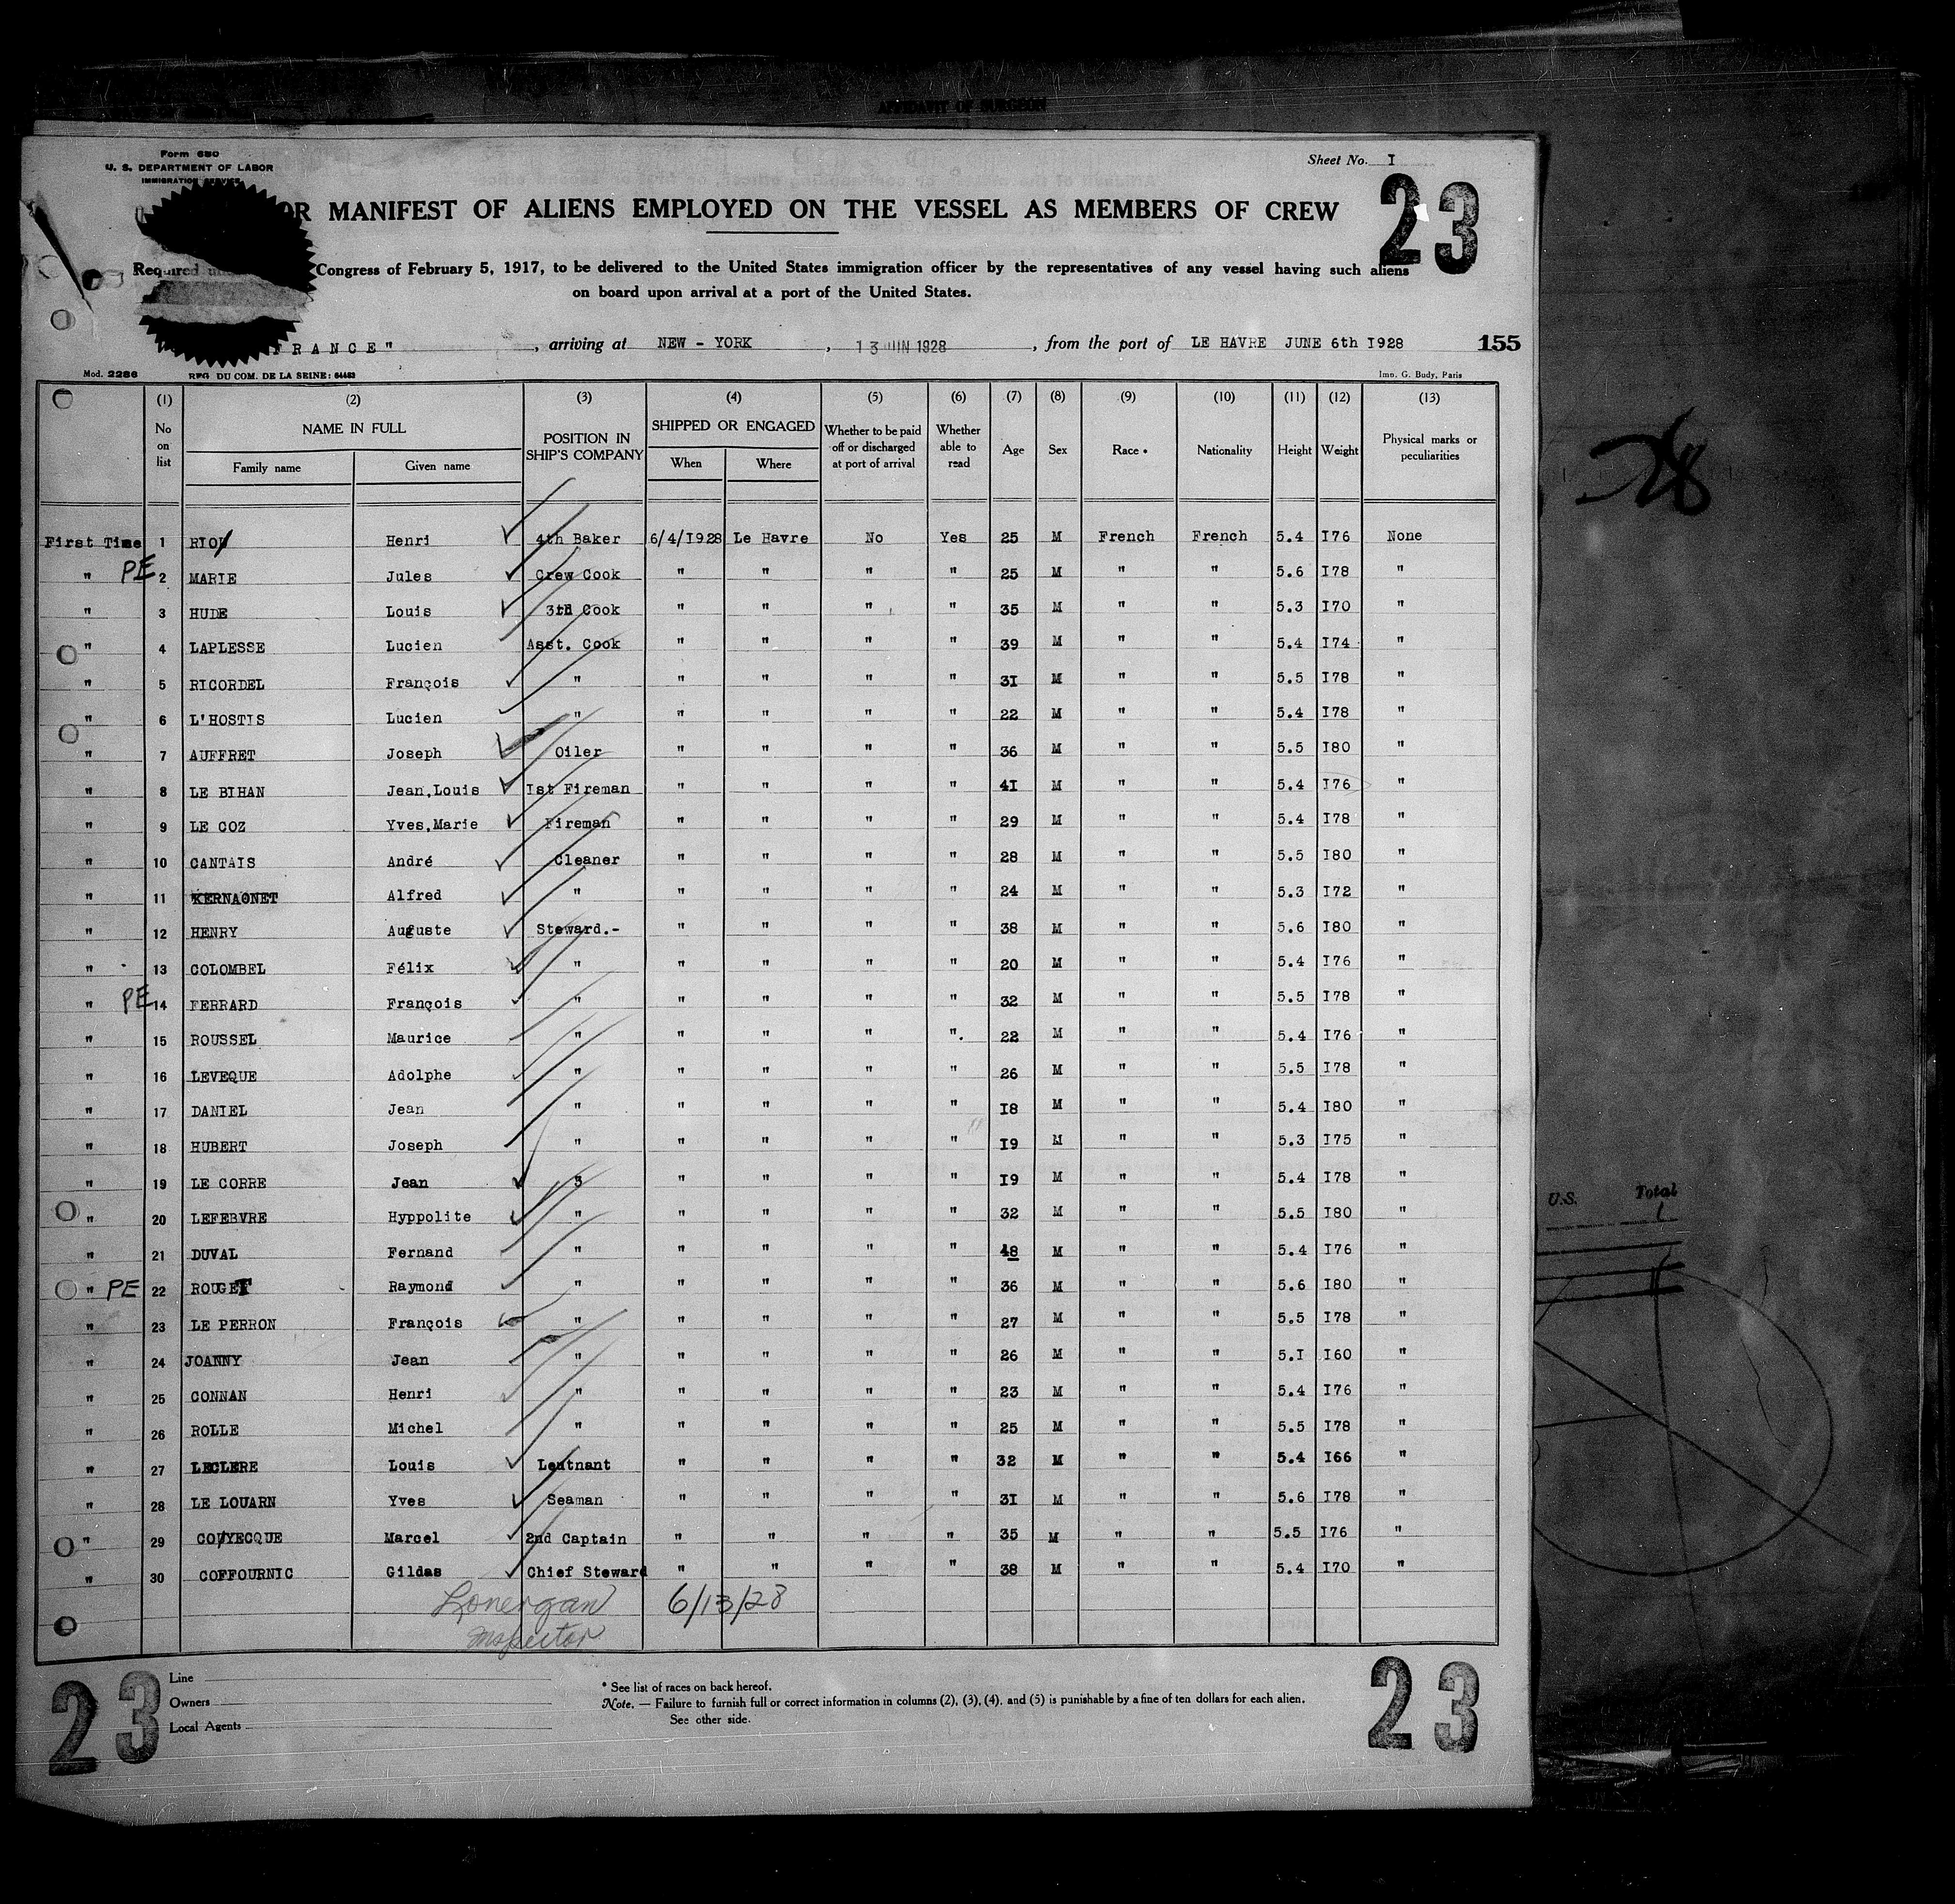 AFFIDAVIT OF SURGEON
Form 680
U. S. DEPARTMENT OF LABOR
IMMIGRATION SERVICE
Sheet No. I
23
OR MANIFEST OF ALIENS EMPLOYED ON THE VESSEL AS MEMBERS OF CREW
Required Congress of February 5, 1917, to be delivered to the United States immigration officer by the representatives of any vessel having such aliens
on board upon arrival at a port of the United States.
FRANCE" , arriving at NEW - YORK , 13 JUN 1928 , from the port of LE HAVRE JUNE 6th I928 155
Mod. 2286 REG. DU COM. DE LA SEINE: 64483 Imp. G. Budy, Paris
(1) (2) (3) (4) (5) (6) (7) (8) (9) (10) (11) (12) (13)
No on list NAME IN FULL Family name Given name POSITION IN SHIP'S COMPANY SHIPPED OR ENGAGED When Where Whether to be paid off or discharged at port of arrival Whether able to read Age Sex Race * Nationality Height Weight Physical marks or peculiarities
First Time 1 RIOU Henri 4th Baker 6/4/I928 Le Havre No Yes 25 M French French 5.4 I76 None
" PE 2 MARIE Jules Crew Cook " " " " 25 M " " 5.6 I78 "
" 3 HUDE Louis 3th Cook " " " " 35 M " " 5.3 I70 "
" 4 LAPLESSE Lucien Asst. Cook " " " " 39 M " " 5.4 I74 "
" 5 RICORDEL François " " " " " 3I M " " 5.5 I78 "
" 6 L'HOSTIS Lucien " " " " " 22 M " " 5.4 I78 "
" 7 AUFFRET Joseph Oiler " " " " 36 M " " 5.5 I80 "
" 8 LE BIHAN Jean,Louis Ist Fireman " " " " 4I M " " 5.4 I76 "
" 9 LE COZ Yves,Marie Fireman " " " " 29 M " " 5.4 I78 "
" 10 CANTAIS André Cleaner " " " " 28 M " " 5.5 I80 "
" 11 KERNAONET Alfred " " " " " 24 M " " 5.3 I72 "
" 12 HENRY Auguste Steward.- " " " " 38 M " " 5.6 I80 "
" 13 COLOMBEL Félix " " " " " 20 M " " 5.4 I76 "
" PE 14 FERRARD François " " " " " 32 M " " 5.5 I78 "
" 15 ROUSSEL Maurice " " " " " 22 M " " 5.4 I76 "
" 16 LEVEQUE Adolphe " " " " " 26 M " " 5.5 I78 "
" 17 DANIEL Jean " " " " " I8 M " " 5.4 I80 "
" 18 HUBERT Joseph " " " " " I9 M " " 5.3 I75 "
" 19 LE CORRE Jean 3 " " " " I9 M " " 5.4 I78 "
" 20 LEFEBVRE Hyppolite " " " " " 32 M " " 5.5 I80 "
" 21 DUVAL Fernand " " " " " 48 M " " 5.4 I76 "
" PE 22 ROUGET Raymond " " " " " 36 M " " 5.6 I80 "
" 23 LE PERRON François " " " " " 27 M " " 5.5 I78 "
" 24 JOANNY Jean " " " " " 26 M " " 5.I I60 "
" 25 CONNAN Henri " " " " " 23 M " " 5.4 I76 "
" 26 ROLLE Michel " " " " " 25 M " " 5.5 I78 "
" 27 LECLERE Louis Leutnant " " " " 32 M " " 5.4 I66 "
" 28 LE LOUARN Yves Seaman " " " " 3I M " " 5.6 I78 "
" 29 COUYECQUE Marcel 2nd Captain " " " " 35 M " " 5.5 I76 "
" 30 COFFOURNIC Gildas Chief Steward " " " " 38 M " " 5.4 I70 "
Lonergan 6/13/28
Inspector
23
Line
Owners
Local Agents
* See list of races on back hereof.
Note. — Failure to furnish full or correct information in columns (2), (3), (4), and (5) is punishable by a fine of ten dollars for each alien.
See other side.
23
U.S. Total